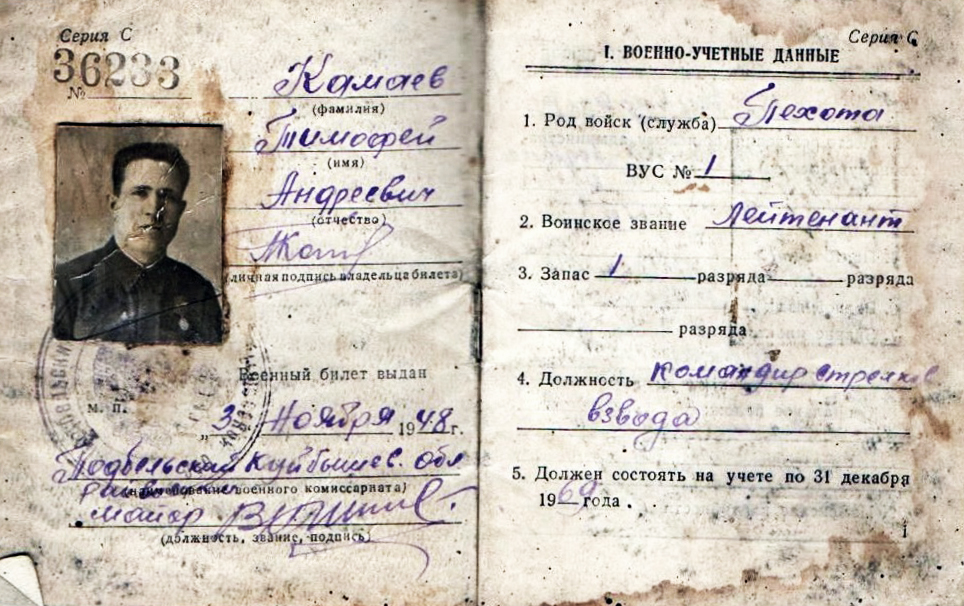 Серия С
36233
№
Камаев
(фамилия)
Тимофей
(имя)
Андреевич
(отчество)
(личная подпись владельца билета)
Военный билет выдан
м. п.
„3 Ноября 1948 г.
Подбельский Куйбышев. обл
(наименование военного комиссариата)
майор
(должность, звание, подпись)
Серия С
I. ВОЕННО-УЧЕТНЫЕ ДАННЫЕ
1. Род войск (служба) Пехота
ВУС № 1
2. Воинское звание Лейтенант
3. Запас 1 разряда разряда
разряда
4. Должность командир стрелков
взвода
5. Должен состоять на учете по 31 декабря
1969 года.
1